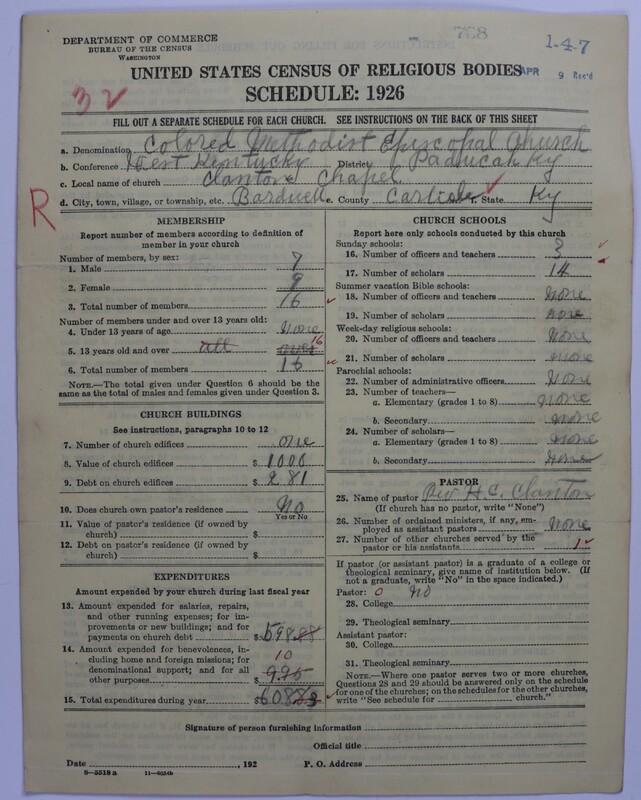 DEPARTMENT OF COMMERCE
BUREAU OF THE CENSUS
WASHINGTON
768
1-4-7
UNITED STATES CENSUS OF RELIGIOUS BODIES
APR 9 Rec'd
SCHEDULE: 1926
32
FILL OUT A SEPARATE SCHEDULE FOR EACH CHURCH. SEE INSTRUCTIONS ON THE BACK OF THIS SHEET
a. Denomination Colored Methodist Episcopal Church
b. Conference West Kentucky District Paducah Ky
c. Local name of church Clanton Chapel
d. City, town, village, or township, etc. Bardwell e. County Carlisle f. State Ky
R
MEMBERSHIP
Report number of members according to definition of member in your church
Number of members, by sex:
1. Male 7
2. Female 9
3. Total number of members 16
Number of members under and over 13 years old:
4. Under 13 years of age None
5. 13 years old and over all over 16
6. Total number of members 16
NOTE.—The total given under Question 6 should be the same as the total of males and females given under Question 3.
CHURCH BUILDINGS
See instructions, paragraphs 10 to 12
7. Number of church edifices one
8. Value of church edifices $ 1000
9. Debt on church edifices $ 281
10. Does church own pastor's residence No
Yes or No
11. Value of pastor's residence (if owned by church) $
12. Debt on pastor's residence (if owned by church) $
EXPENDITURES
Amount expended by your church during last fiscal year
13. Amount expended for salaries, repairs, and other running expenses; for improvements or new buildings; and for payments on church debt $ 598.88
14. Amount expended for benevolences, including home and foreign missions; for denominational support; and for all other purposes $ 10 9.95
15. Total expenditures during year $ 608.83
CHURCH SCHOOLS
Report here only schools conducted by this church
Sunday schools:
16. Number of officers and teachers 3
17. Number of scholars 14
Summer vacation Bible schools:
18. Number of officers and teachers None
19. Number of scholars none
Week-day religious schools:
20. Number of officers and teachers None
21. Number of scholars none
Parochial schools:
22. Number of administrative officers None
23. Number of teachers—
a. Elementary (grades 1 to 8) none
b. Secondary none
24. Number of scholars—
a. Elementary (grades 1 to 8) none
b. Secondary None
PASTOR
25. Name of pastor Rev H. C. Clanton
(If church has no pastor, write "None")
26. Number of ordained ministers, if any, employed as assistant pastors None
27. Number of other churches served by the pastor or his assistants 1
If pastor (or assistant pastor) is a graduate of a college or theological seminary, give name of institution below. (If not a graduate, write "No" in the space indicated.)
Pastor: 0 No
28. College
29. Theological seminary
Assistant pastor:
30. College
31. Theological seminary
NOTE.—Where one pastor serves two or more churches, Questions 28 and 29 should be answered only on the schedule for one of the churches; on the schedules for the other churches, write "See schedule for church."
Signature of person furnishing information
Official title
Date , 192 P. O. Address
8-5518 a 11-6054b